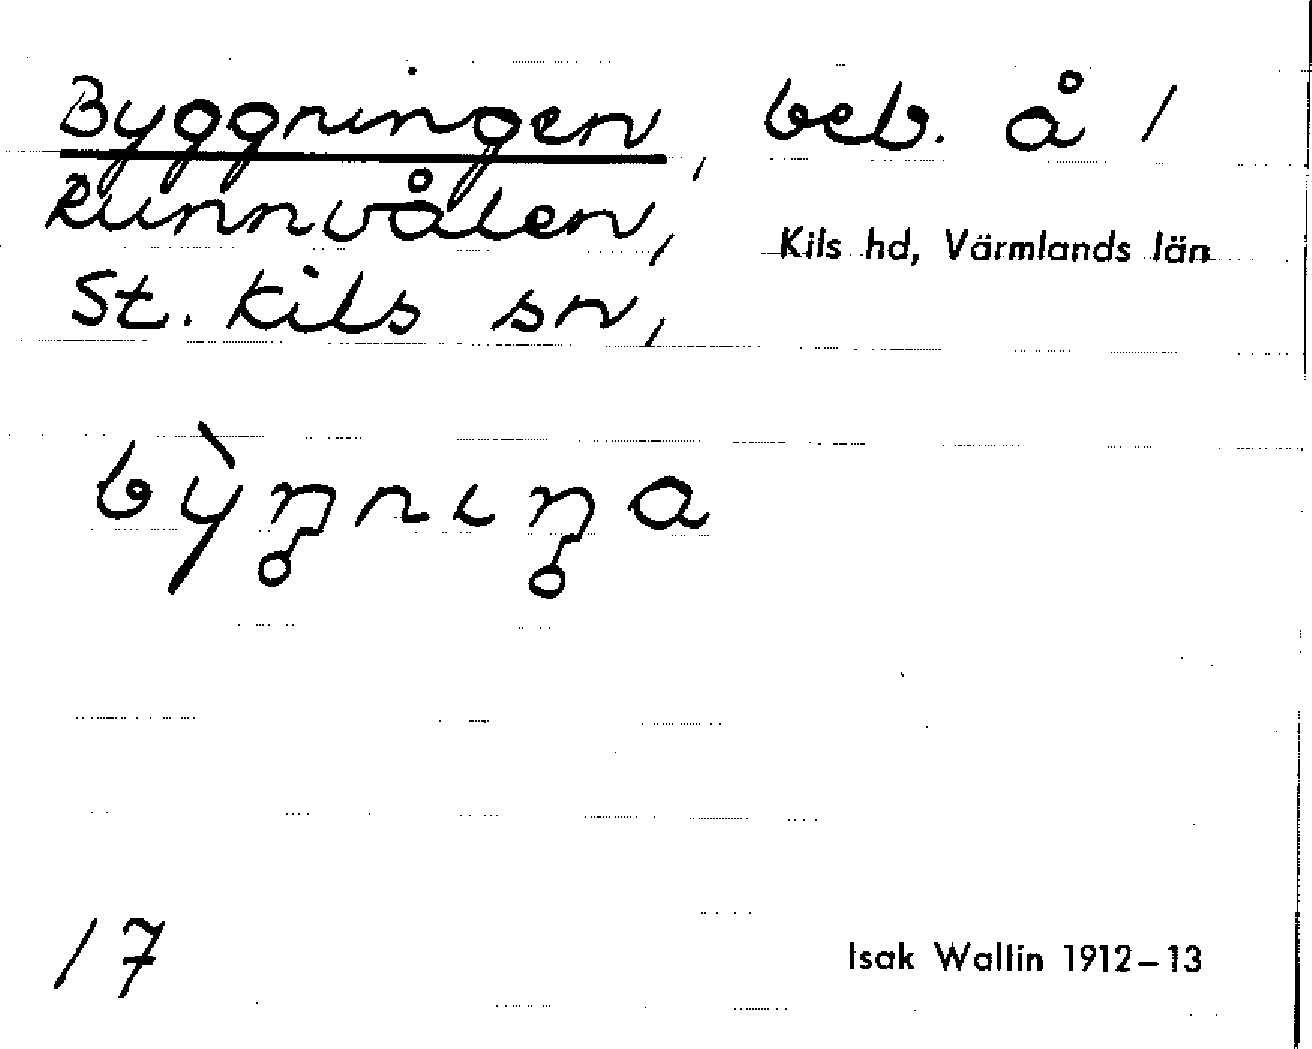 Byggningen, beb. å 1
Runnvålen,
Kils hd, Värmlands län
St. Kils sn,
bỳŋnıŋa
17
Isak Wallin 1912–13